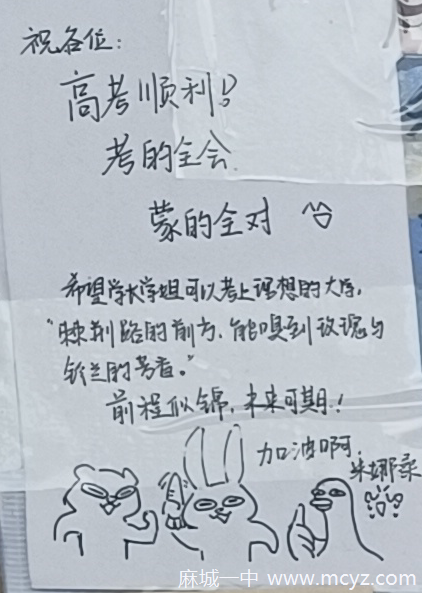 祝各位：
高考顺利！
考的全会
蒙的全对
希望学长学姐可以考上理想的大学，
“荆棘路的前方，能嗅到玫瑰与
铃兰的芳香。”
前程似锦，未来可期！
加油啊，
米娜桑
麻城一中 www.mcyz.com